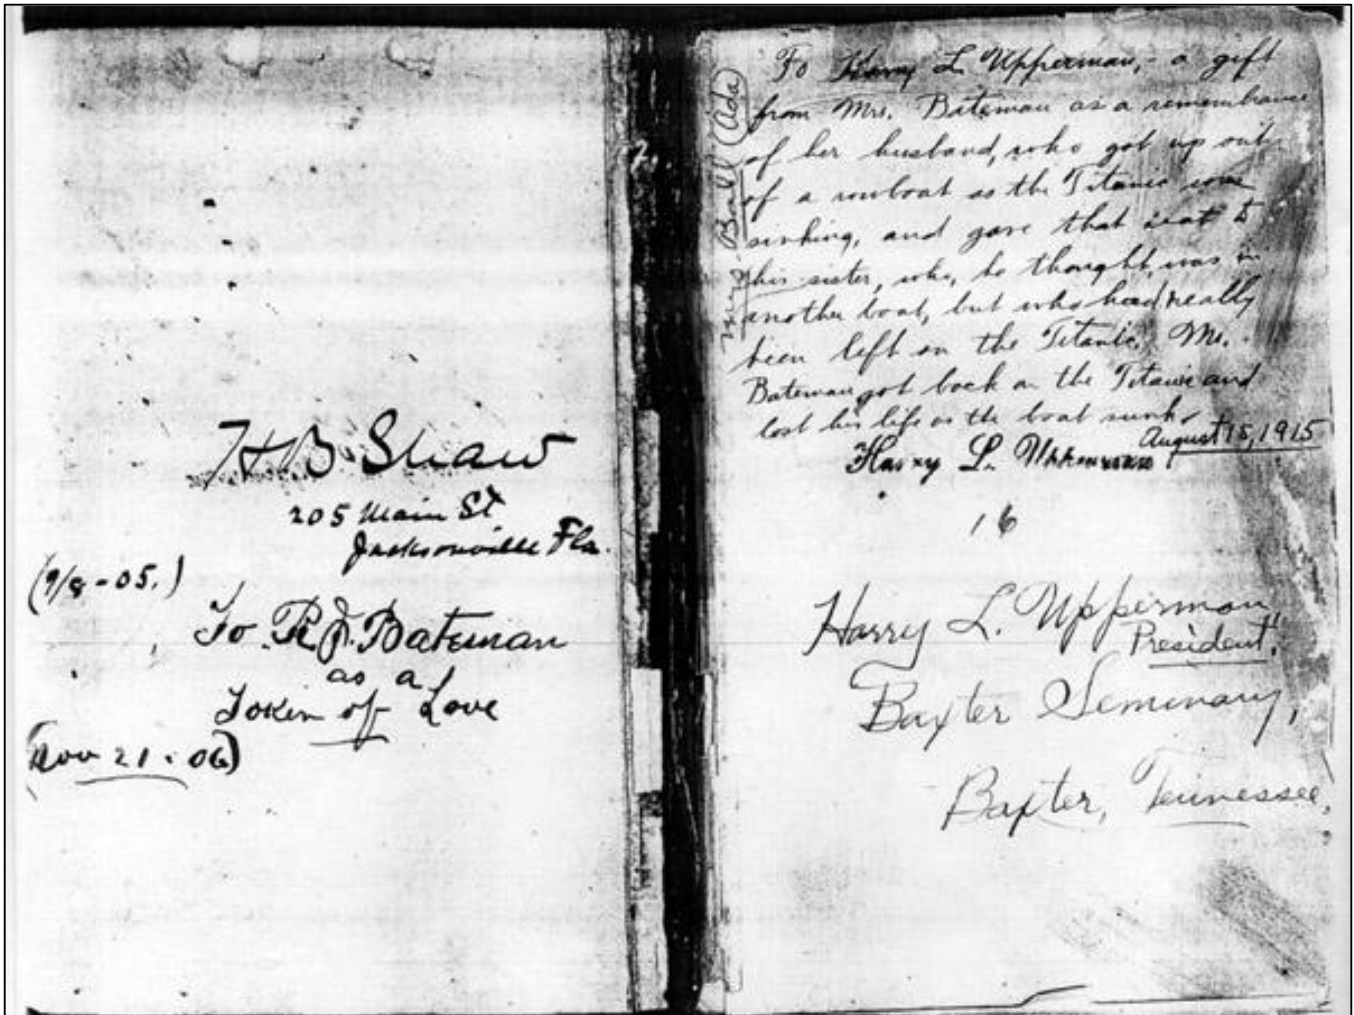 H B Shaw
205 Main St
Jacksonville Fla.
(9/8-05.)
To R J. Bateman
as a
Token of Love
(Nov 21-06)
To Harry L. Upperman, - a gift
from Mrs. Bateman as a remembrance
of her husband, who got up out
of a rowboat as the Titanic was
sinking, and gave that seat to
his sister, who, he thought, was in
another boat, but who had really
been left on the Titanic. Mr.
Bateman got back on the Titanic and
lost his life as the boat sunk.
August 15, 1915
Harry L. Upperman
Ball (Ada)
16
Harry L. Upperman,
President.
Baxter Seminary,
Baxter, Tennessee.